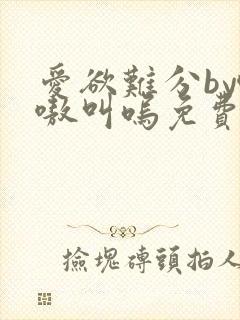 愛欲難分by
嗷叫嗚免費
撿塊磚頭拍人